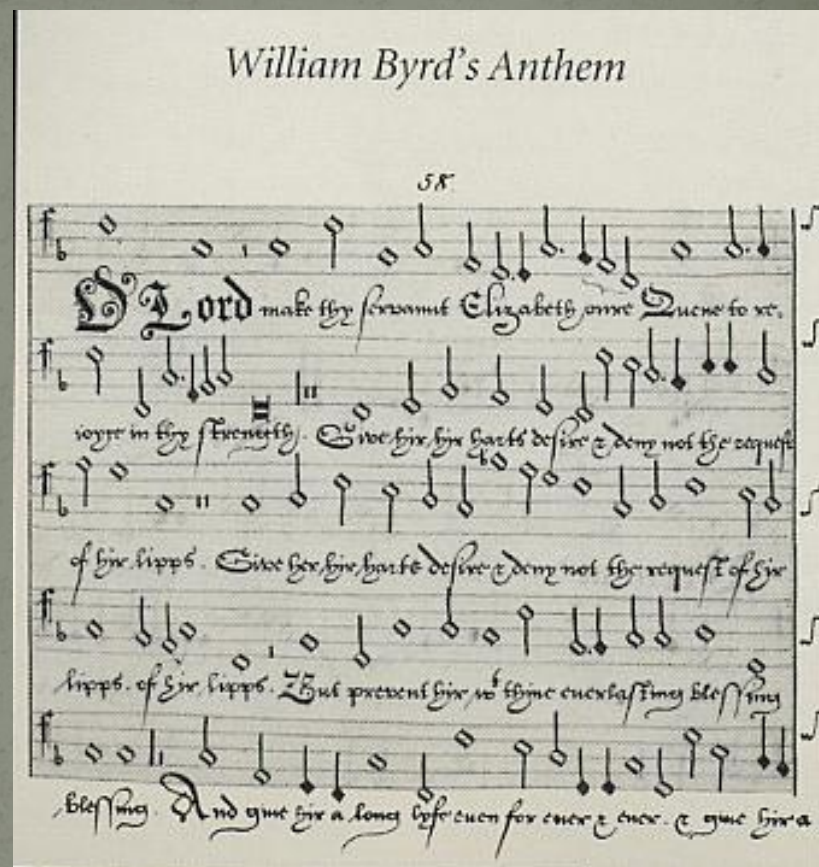 William Byrd's Anthem
58
O Lord make thy servannt Elizabeth oure Quene to re,
ioyce in thy strength. Give hir, hir harts desire & deny not the request
of hir lipps. Give her, hir harts desire & deny not the request of hir
lipps. of hir lipps. But prevent hir wt thine everlasting blessing
blessing. And give hir a long lyfe even for ever & ever. & give hir a